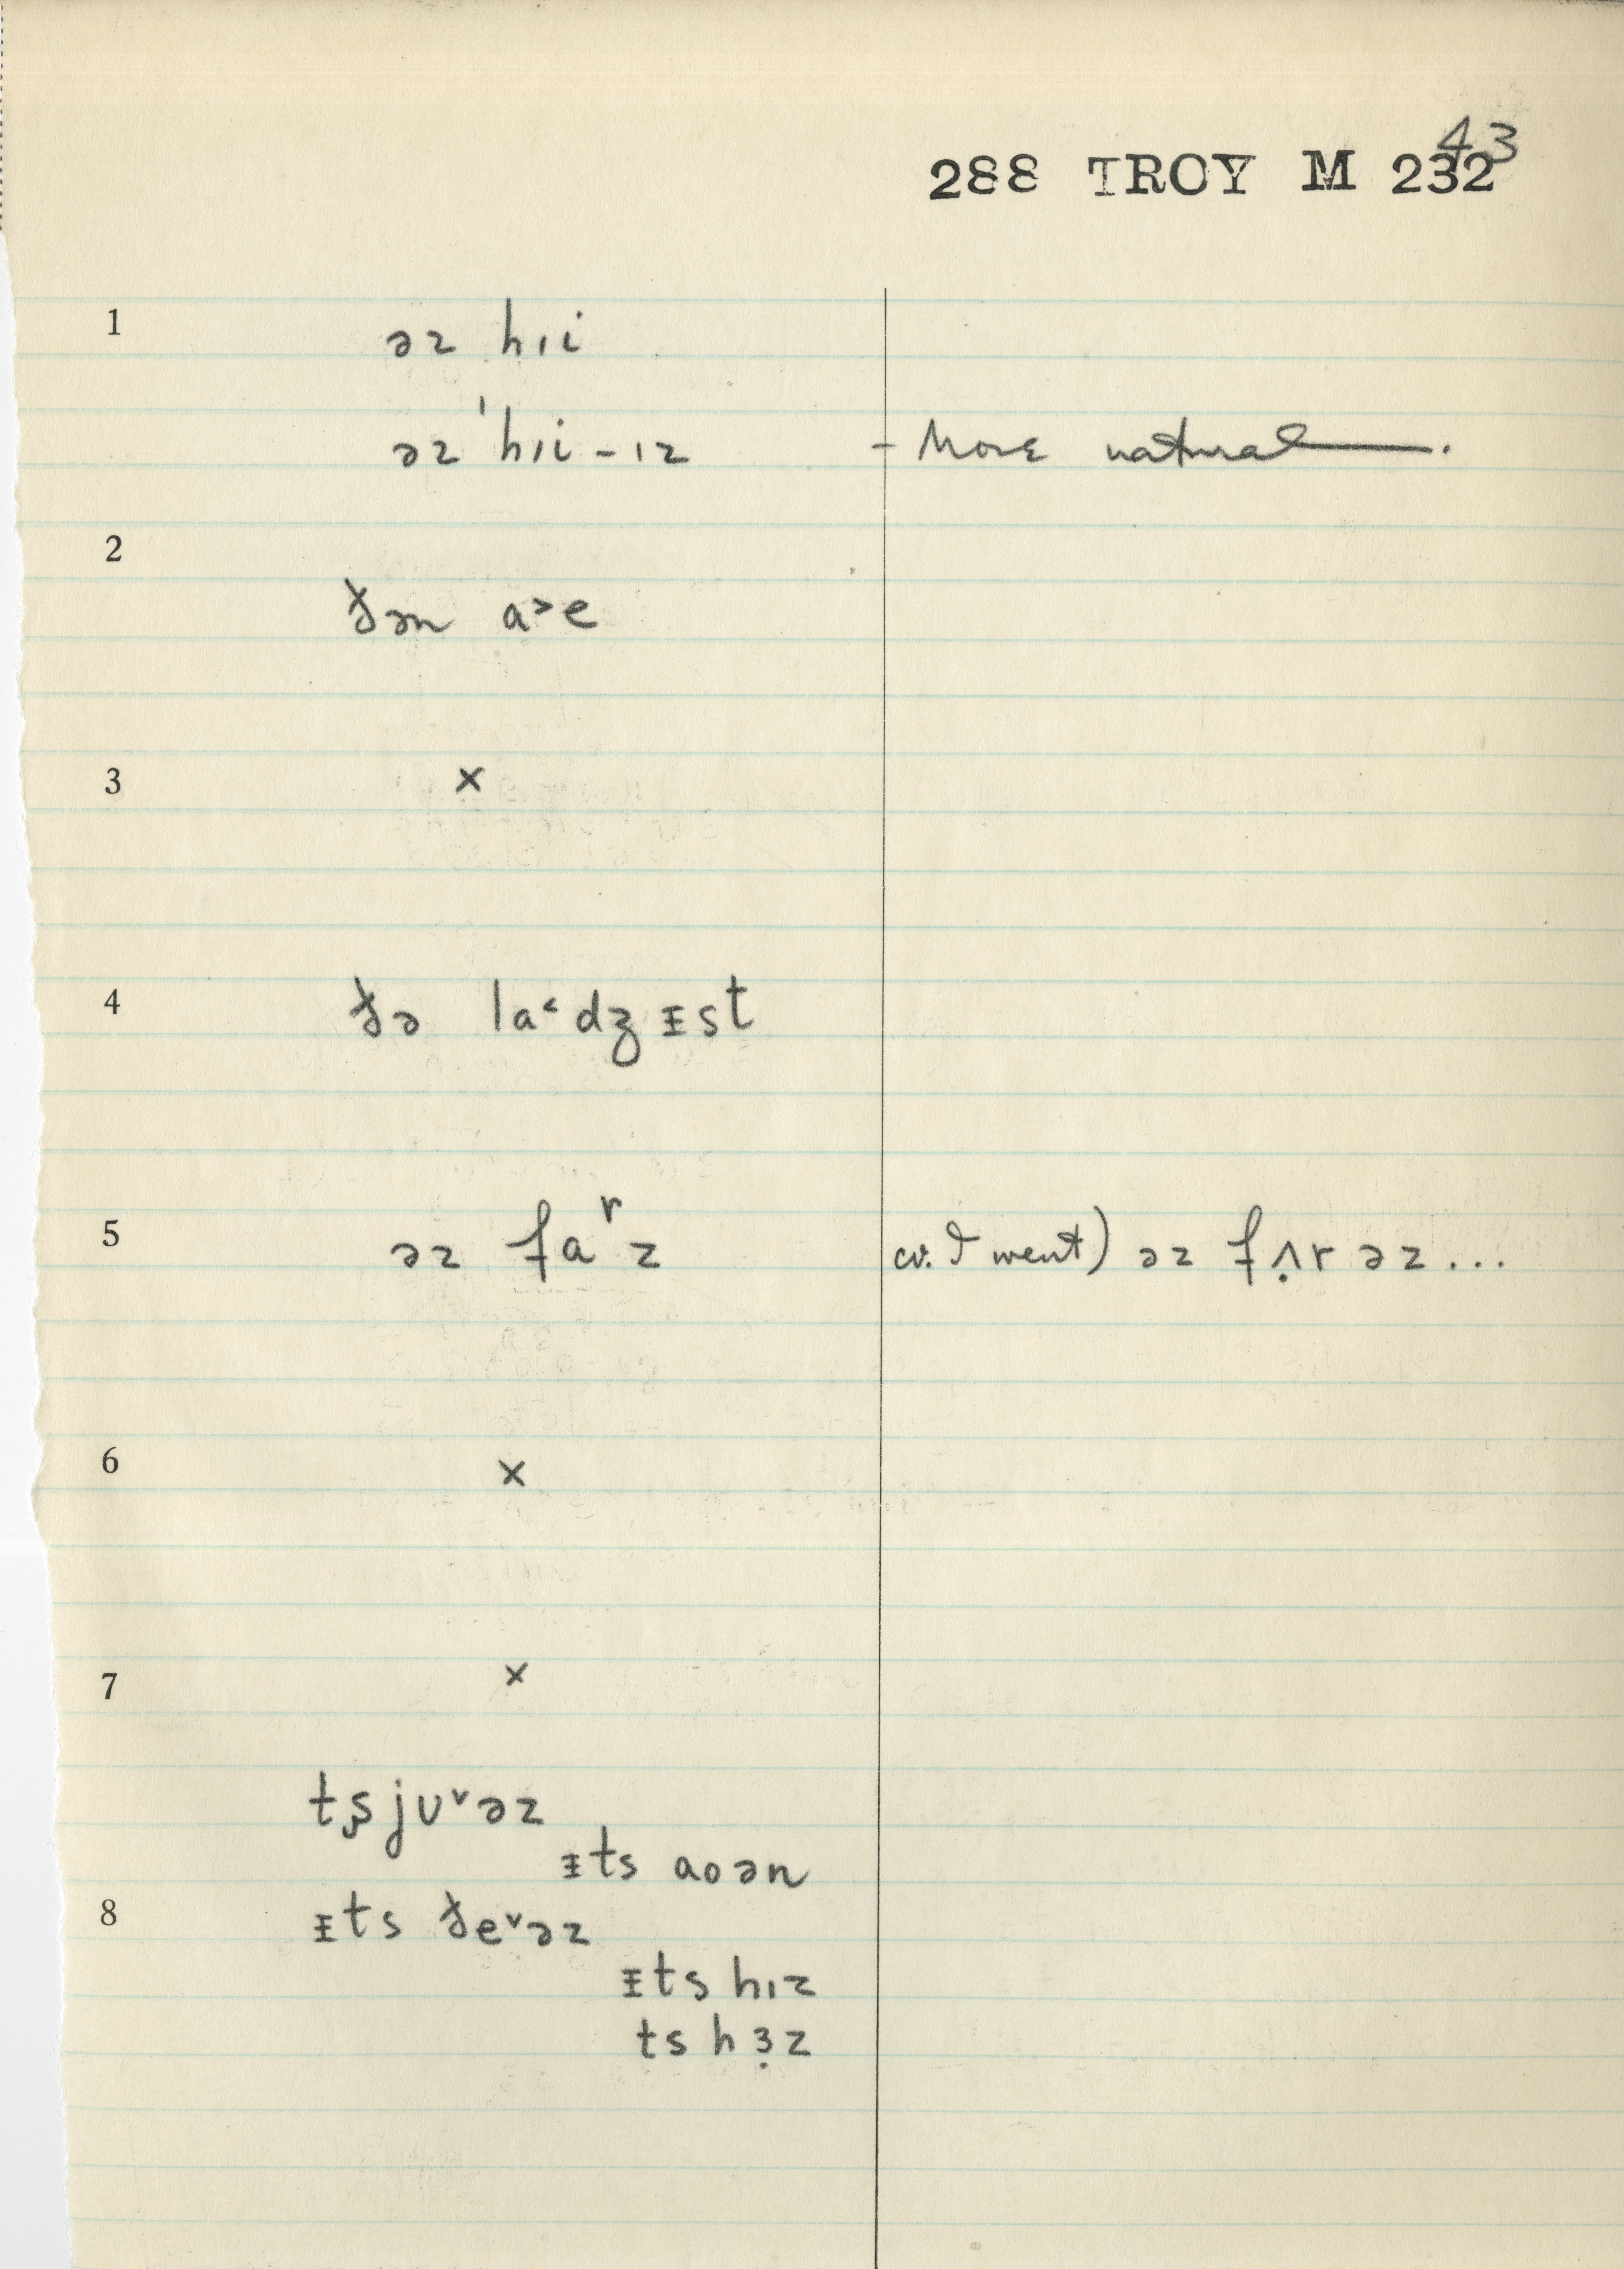 43
288 TROY M 232
1 əz hɪi
əz ˈhɪi-ɪz - More natural.
2
ðən a˃e
3 ×
4 ðə la˂dʒᵻst
5 əz faʳz cv. I went) əz fʌ̣r əz...
6 ×
7 ×
tʂju˅əz
ᵻts aoən
8 ᵻts ðe˅əz
ᵻts hɪz
ts hɜ̣z